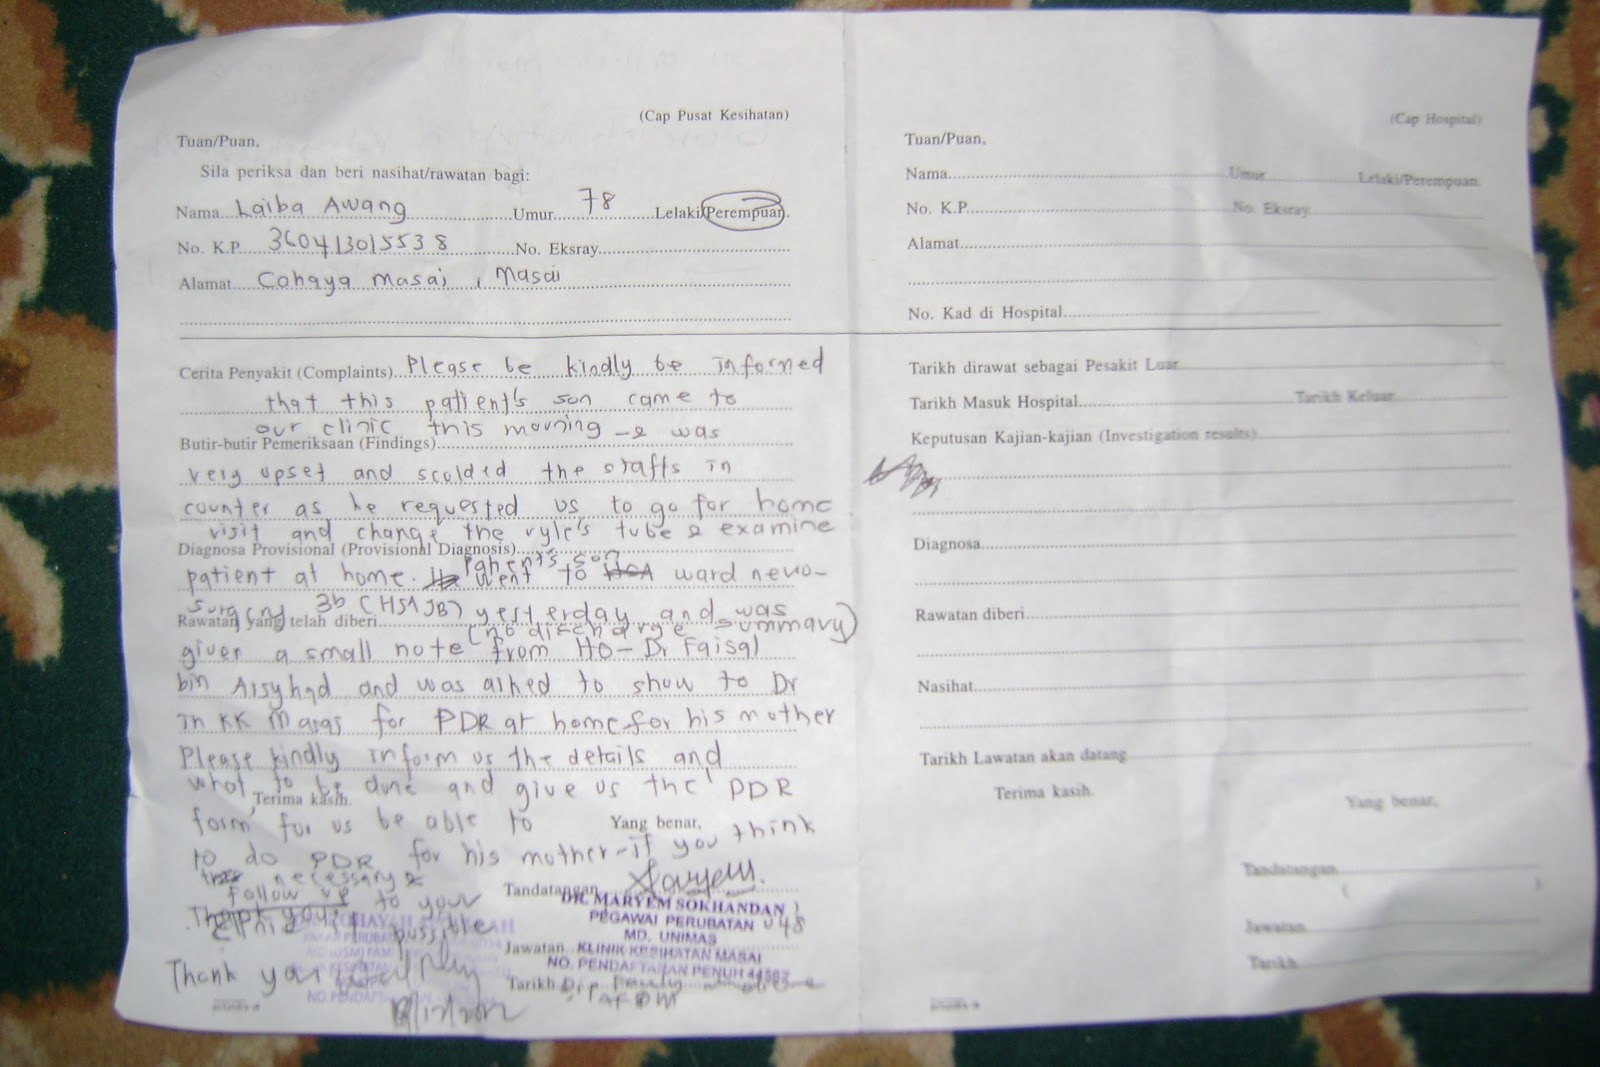 (Cap Pusat Kesihatan)
Tuan/Puan,
Sila periksa dan beri nasihat/rawatan bagi:
Nama Laiba Awang Umur 78 Lelaki/Perempuan.
No. K.P. 360413015538 No. Eksray
Alamat Cahaya Masai, Masai
Cerita Penyakit (Complaints) Please be kindly be informed
that this patient's son came to
our clinic this morning & was
Butir-butir Pemeriksaan (Findings)
very upset and scolded the staffs in
counter as he requested us to go for home
visit and change the ryle's tube & examine
Diagnosa Provisional (Provisional Diagnosis)
patient's son
patient at home. went to ward neuro-
surgery 3b (HSAJB) yesterday and was
Rawatan yang telah diberi (no discharge summary)
given a small note from HO - Dr Faisal
bin and was asked to show to Dr
in KK Masai for PDR at home for his mother
Please kindly inform us the details and
what to be done and give us the PDR
Terima kasih.
form for us be able to
Yang benar,
to do PDR for his mother - if you think
necessary &
follow up to your
if possible
Thank you
Tandatangan
DR. MARYEM SOKHANDAN
PEGAWAI PERUBATAN U48
MD. UNIMAS
Jawatan KLINIK KESIHATAN MASAI
NO. PENDAFTARAN PENUH
Tarikh
(Cap Hospital)
Tuan/Puan,
Nama Umur Lelaki/Perempuan.
No. K.P. No. Eksray
Alamat
No. Kad di Hospital
Tarikh dirawat sebagai Pesakit Luar
Tarikh Masuk Hospital Tarikh Keluar
Keputusan Kajian-kajian (Investigation results)
Diagnosa
Rawatan diberi
Nasihat
Tarikh Lawatan akan datang
Terima kasih.
Yang benar,
Tandatangan
( )
Jawatan
Tarikh